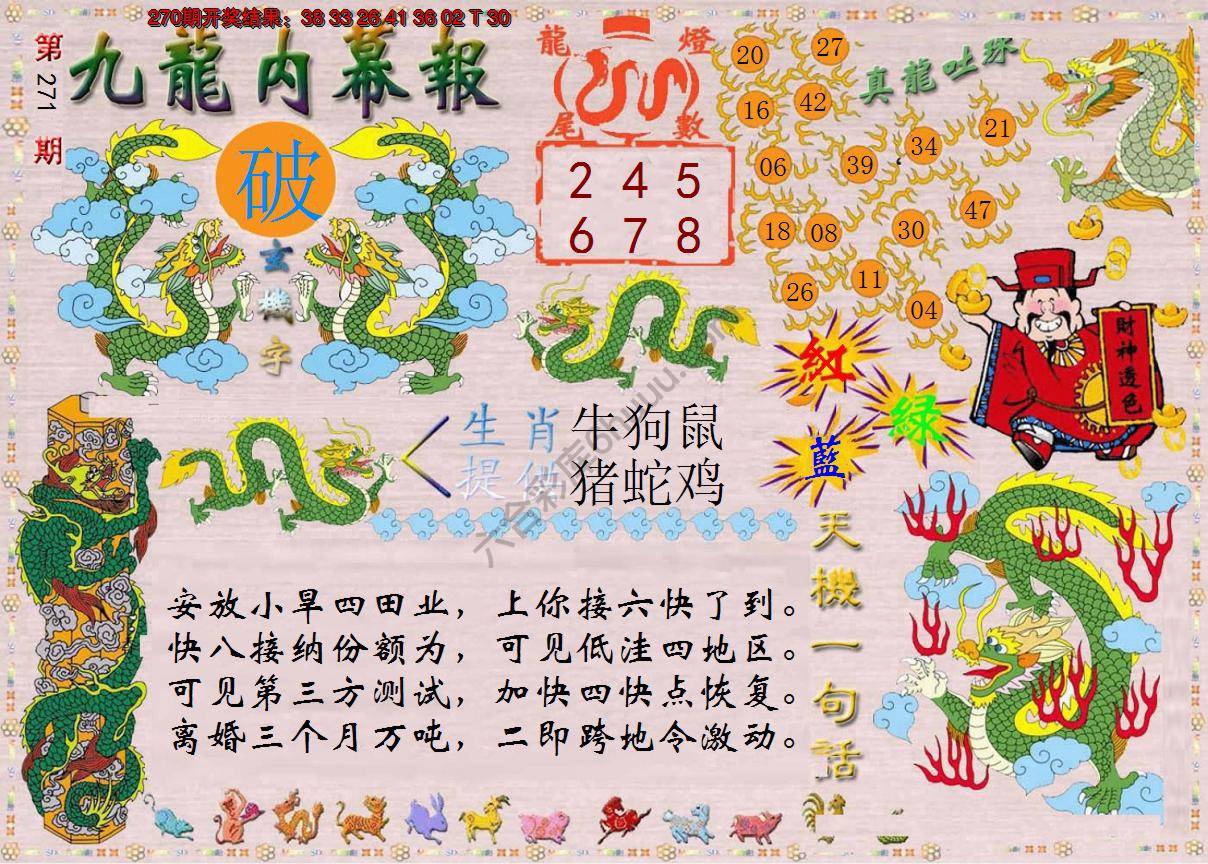 270期开奖结果：38 33 26 41 36 02 T 30
第271期
九龍内幕報
破
玄機字
龍燈
尾數
2 4 5
6 7 8
真龍吐珠
20 27
16 42
21
34
06 39
47
18 08 30
26 11
04
財神透色
紅
綠
藍
生肖 牛狗鼠
提供 猪蛇鸡
六合彩库
天機一句話
安放小旱四田业，上你接六快了到。
快八接纳份额为，可见低洼四地区。
可见第三方测试，加快四快点恢复。
离婚三个月万吨，二即跨地令激动。